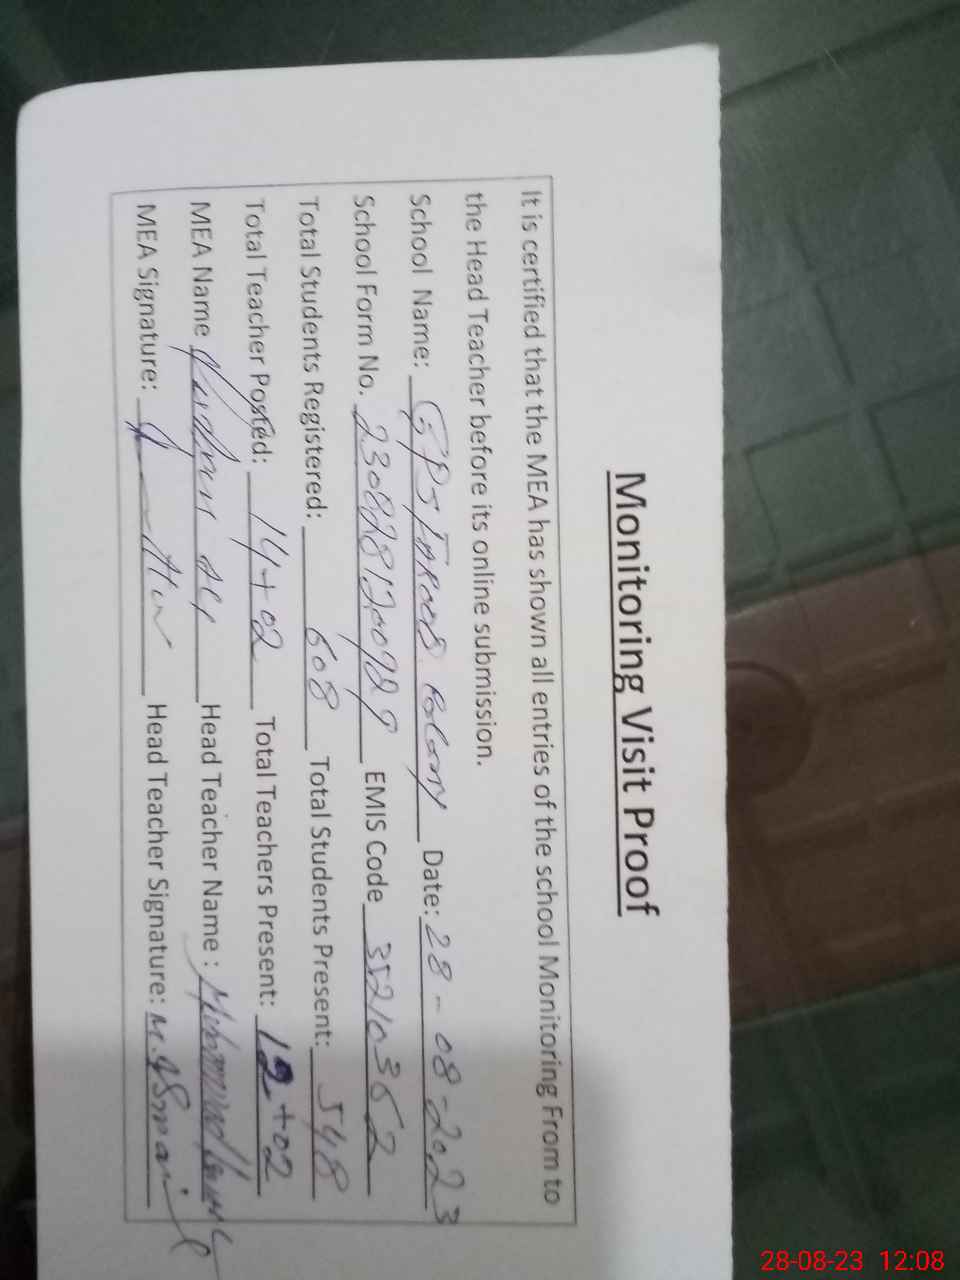 Monitoring Visit Proof
It is certified that the MEA has shown all entries of the school Monitoring From to
the Head Teacher before its online submission.
School Name: GPS Farooq Colony Date: 28-08-2023
School Form No. EMIS Code 35210362
Total Students Registered: 608 Total Students Present: 548
Total Teacher Posted: 14+02 Total Teachers Present: 12+02
MEA Name Head Teacher Name : Muhammad
MEA Signature: Head Teacher Signature: M. ISmail
28-08-23 12:08